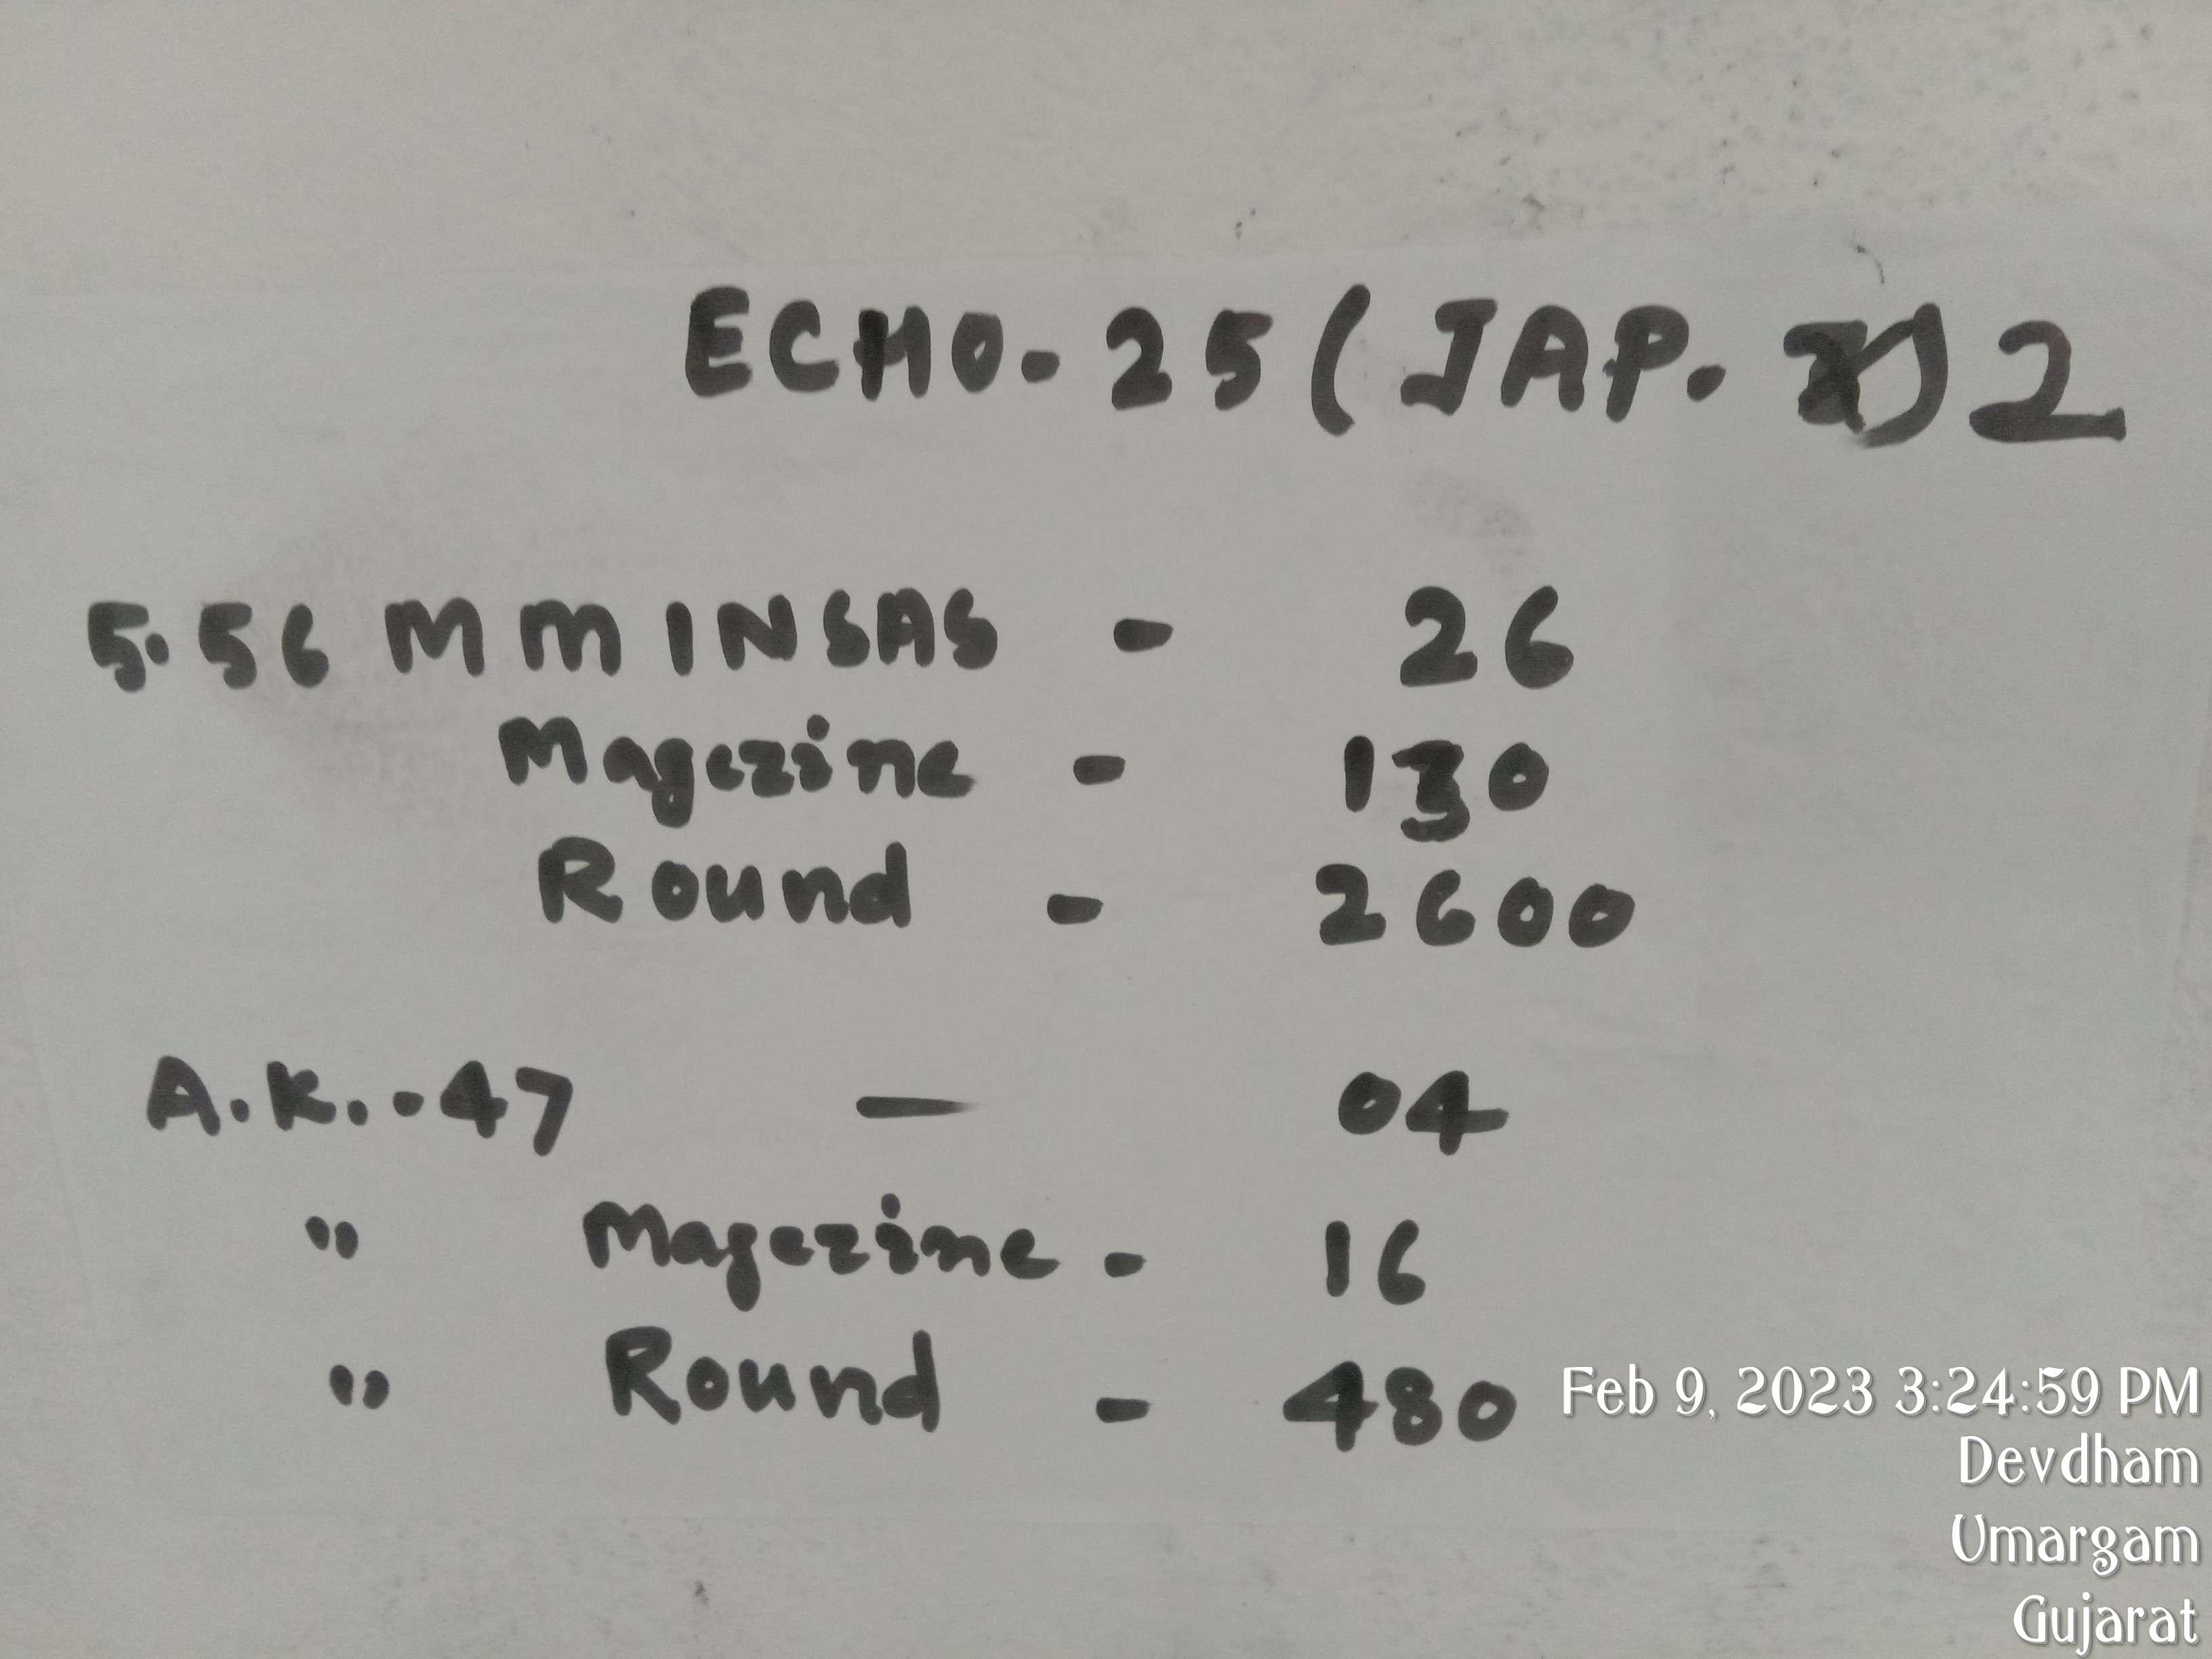 ECHO-25 (JAP. ) 2
5.56 MM INSAS - 26
Magezine - 130
Round - 2600
A.K.-47 - 04
" Magezine - 16
" Round - 480
Feb 9, 2023 3:24:59 PM
Devdham
Umargam
Gujarat